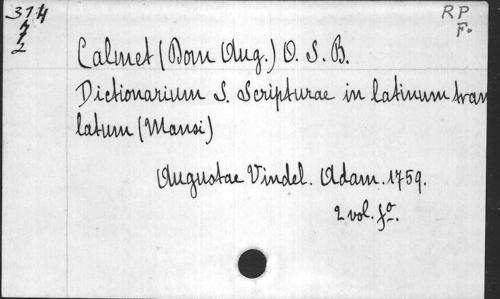 314
4
1
2
RP
F.
Calmet (Dom Aug.) O. S. B.
Dictionarium S. Scripturae in latinum tran
latum (Mansi)
Augustae Vindel. Adam. 1759.
2 vol. fo.